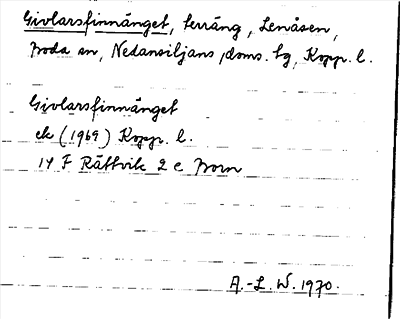 Givlarsfinnänget, terräng, Lenåsen,
Boda sn, Nedansiljans doms. tg, Kopp. l.
Givlarsfinnänget
ek (1969) Kopp. l.
14 F Rättvik 2 e Born
A.-L. W. 1970.